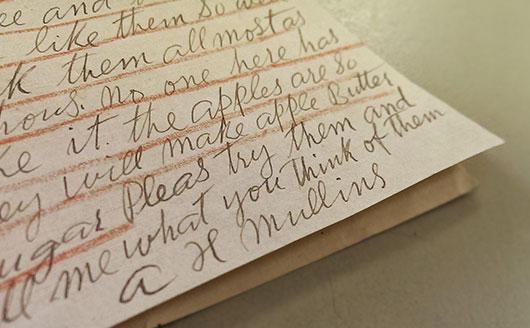 ee and
like them so we
k them allmost as
nous. no one here has
ke it. the apples are so
ey will make apple Butter
ugar Pleas try them and
ll me what you think of them
a H Mullins